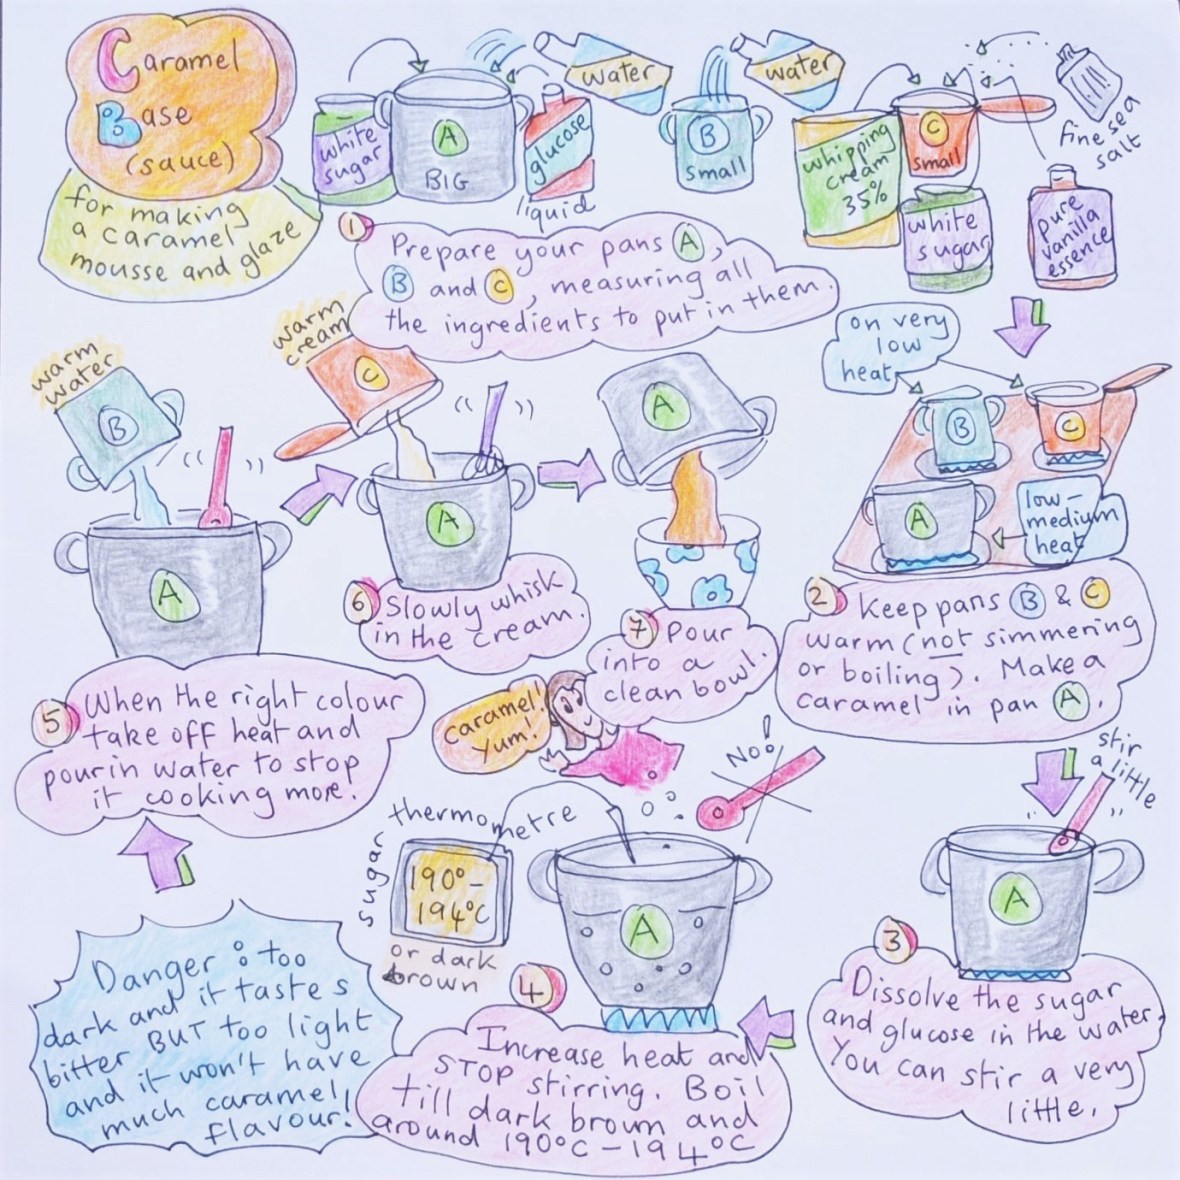 Caramel
Base
(sauce)
for making
a caramel
mousse and glaze
white
sugar
A
BIG
water
glucose
liquid
water
B
small
whipping
cream
35%
C
small
white
sugar
fine sea
salt
pure
vanilla
essence
1
Prepare your pans A,
B and C, measuring all
the ingredients to put in them.
on very
low
heat
B
C
A
low-
medium
heat
2
Keep pans B & C
warm (not simmering
or boiling). Make a
caramel in pan A.
stir
a little
A
3
Dissolve the sugar
and glucose in the water.
You can stir a very
little.
No!
sugar thermometre
190°-
194°C
or dark
brown
A
4
Increase heat and
STOP stirring. Boil
till dark brown and
around 190°C-194°C
Danger: too
dark and it tastes
bitter BUT too light
and it won't have
much caramel
flavour!
warm
water
B
A
5
When the right colour
take off heat and
pour in water to stop
it cooking more!
warm
cream
C
A
6
Slowly whisk
in the cream.
A
7
Pour
into a
clean bowl.
caramel!
Yum!